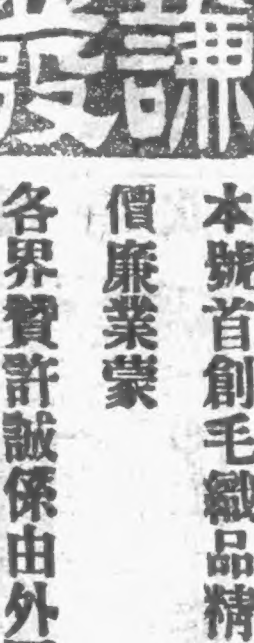 謙
本號首創毛織品精
價廉業蒙
各界贊許誠係由外